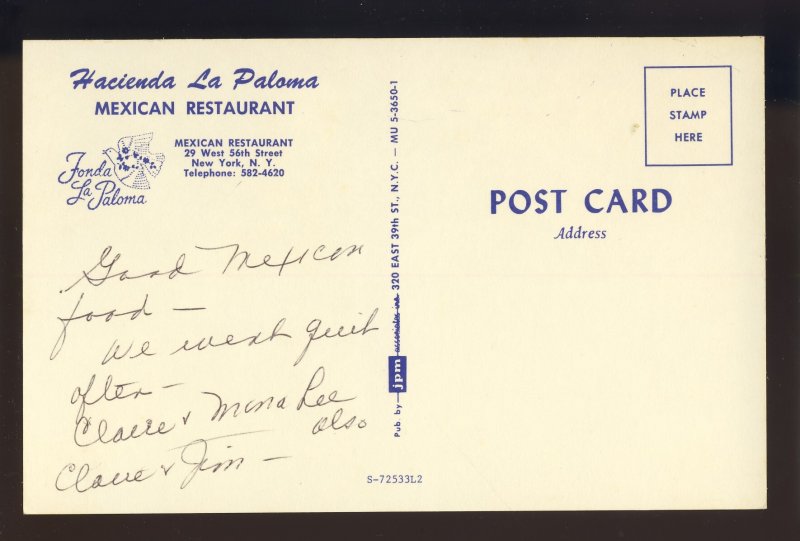 Hacienda La Paloma
MEXICAN RESTAURANT
Fonda
La Paloma
MEXICAN RESTAURANT
29 West 56th Street
New York, N. Y.
Telephone: 582-4620
Good Mexican
food —
We went quit
often —
Claire & Mona Lee
also
Claire & Jim —
Pub. by jpm associates inc. 320 EAST 39th ST., N.Y.C. — MU 5-3650-1
S-72533L2
PLACE
STAMP
HERE
POST CARD
Address